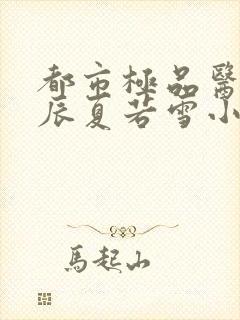 都市極品醫
辰夏若雪小
馬起山